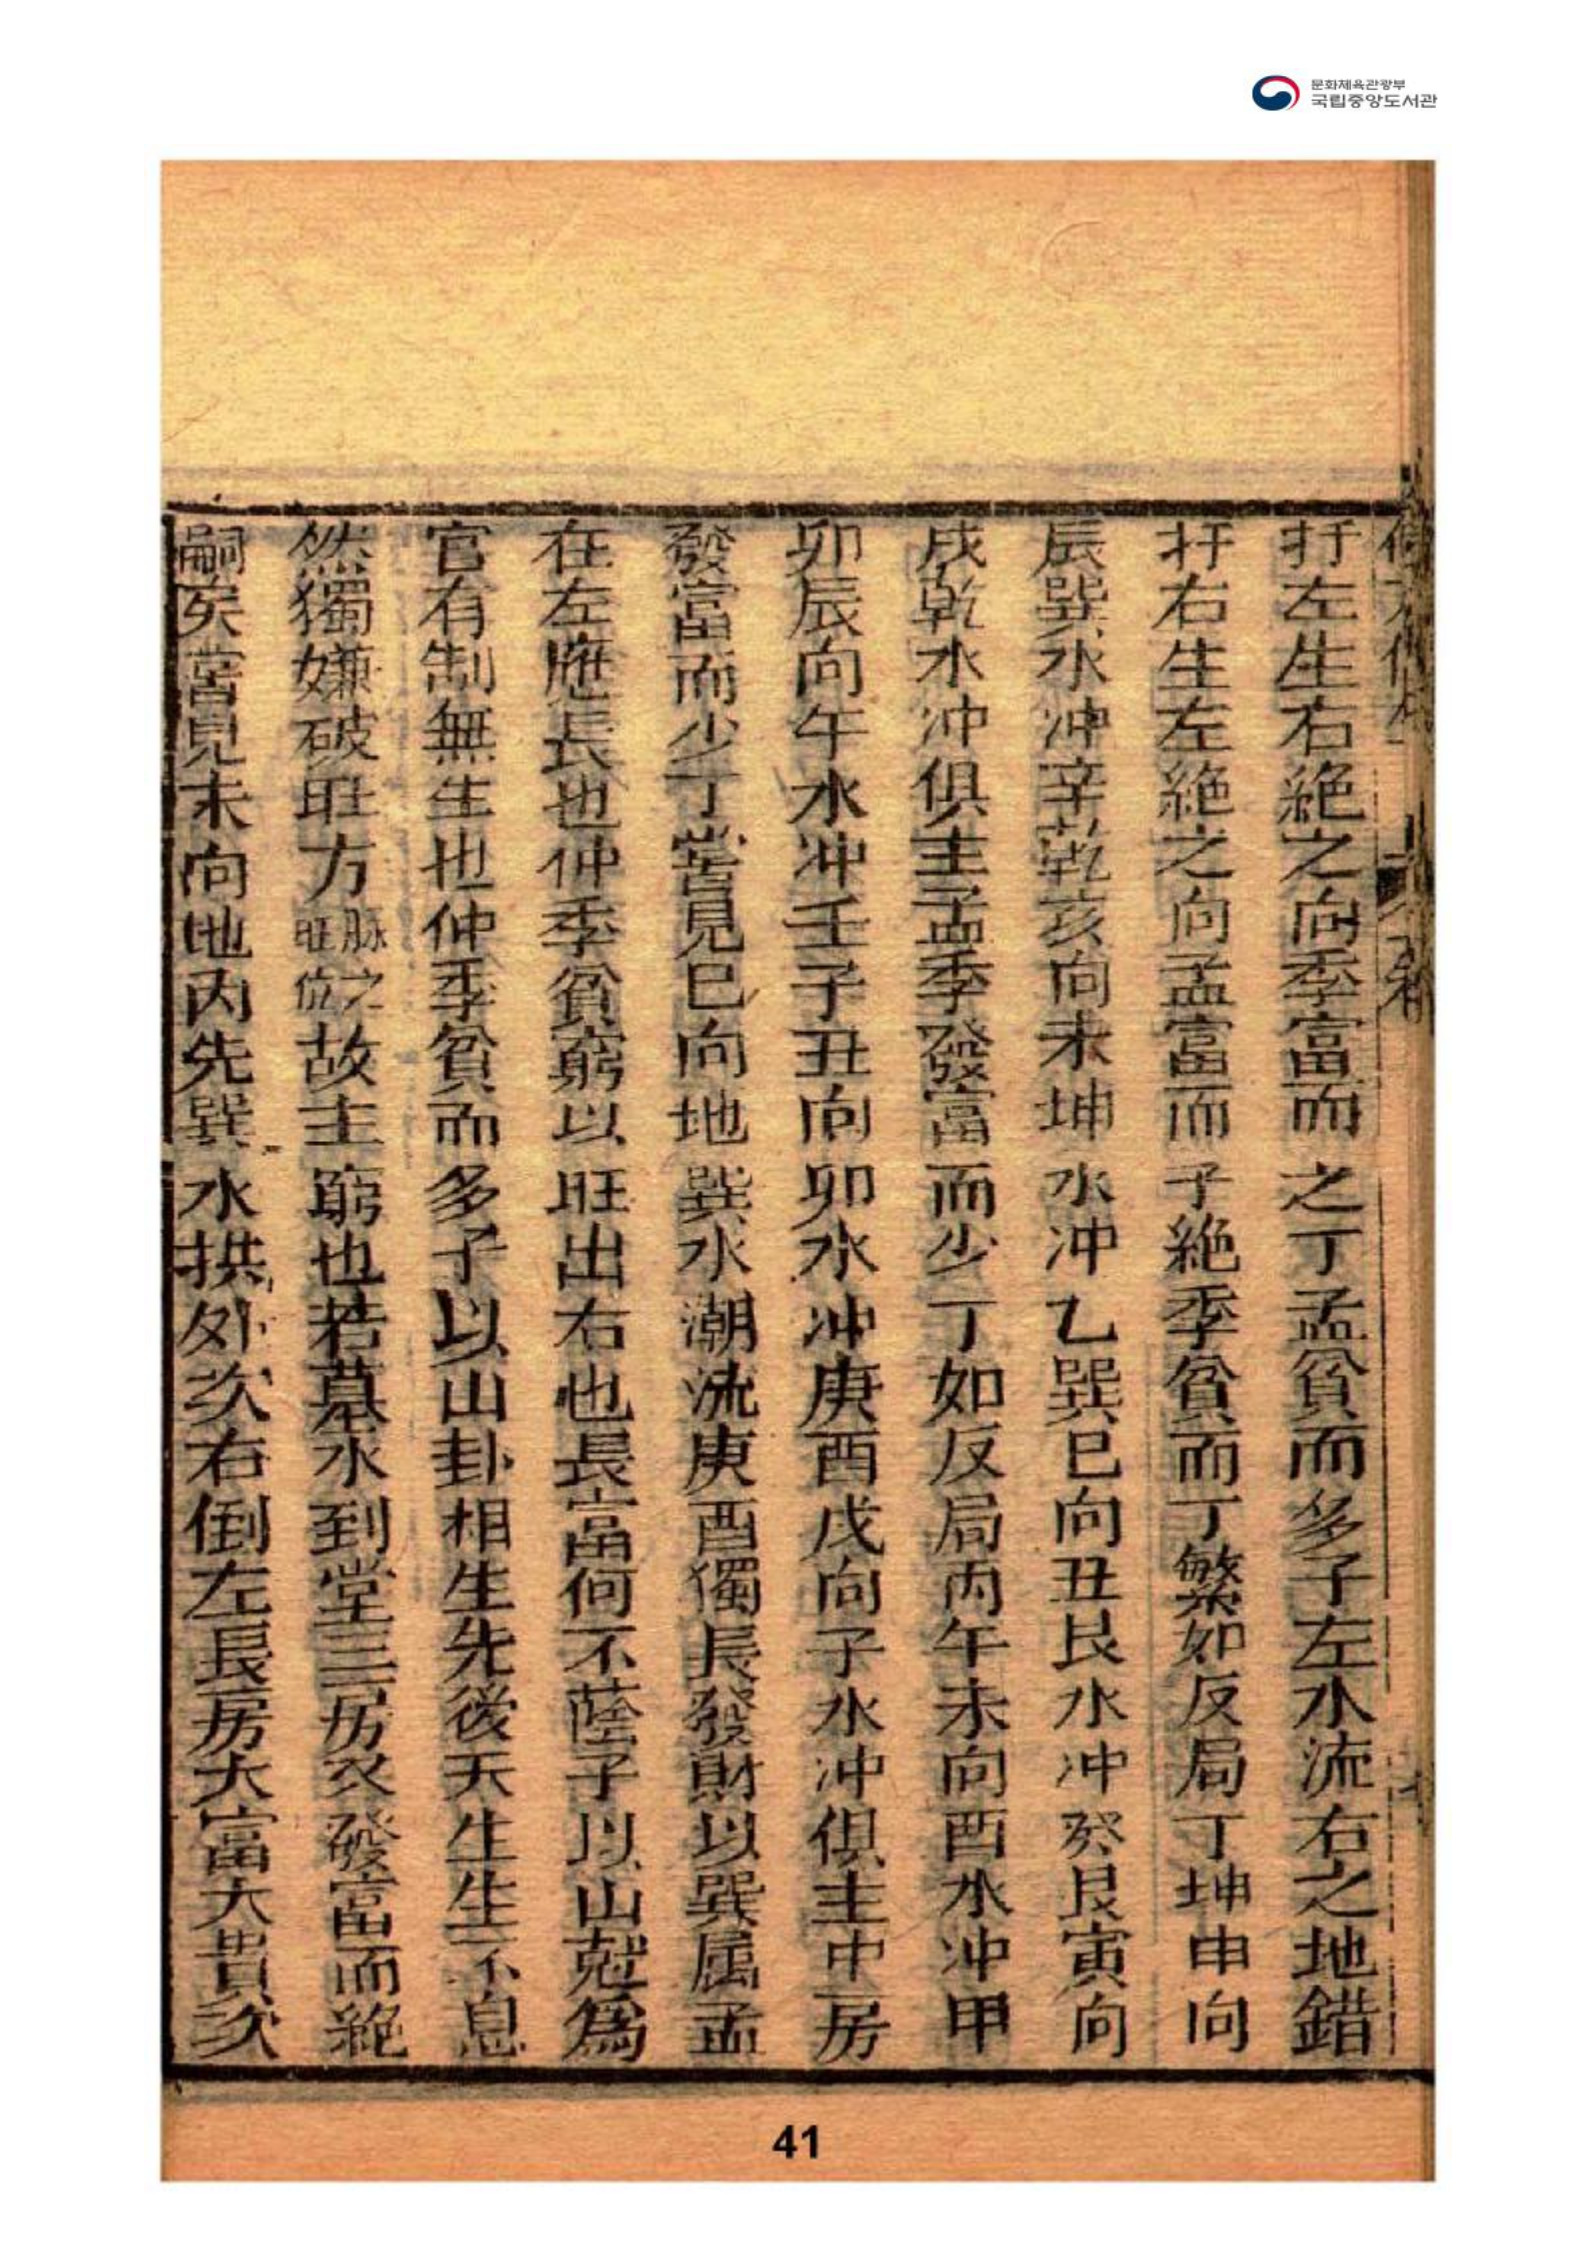 문화체육관광부
국립중앙도서관
扞左生右絶之向季富而之丁孟貧而多子左水流右之地錯
扞右生左絶之向孟富而子絶季貧而丁繁如反局丁坤申向
辰巽水冲辛乾亥向未坤水冲乙巽巳向丑艮水冲癸艮寅向
戌乾水冲俱主孟季發富而少丁如反局丙午未向酉水冲甲
卯辰向午水冲壬子丑向卯水冲庚酉戌向子水冲俱主中房
發富而少丁嘗見巳向地巽水潮流庚酉獨長發財以巽属孟
在左應長也仲季貧窮以旺出右也長富何不蔭子以山尅爲
官有制無生也仲季貧而多子以山卦相生先後天生生不息
然獨嫌破旺方脉之旺位故主窮也若墓水到堂三房义發富而絶
嗣矣嘗見未向地丙先巽水拱外次右倒左長房大富大貴次
41